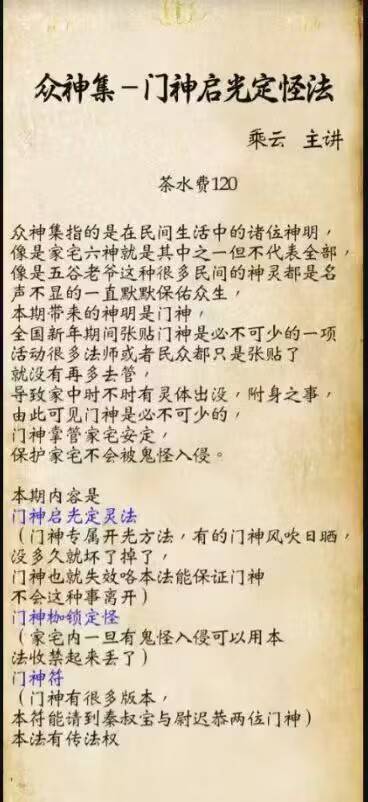 众神集-门神启光定怪法
乘云 主讲
茶水费120
众神集指的是在民间生活中的诸位神明，
像是家宅六神就是其中之一但不代表全部，
像是五谷老爷这种很多民间的神灵都是名
声不显的一直默默保佑众生，
本期带来的神明是门神，
全国新年期间张贴门神是必不可少的一项
活动很多法师或者民众都只是张贴了
就没有再多去管，
导致家中时不时有灵体出没，附身之事，
由此可见门神是必不可少的，
门神掌管家宅安定，
保护家宅不会被鬼怪入侵。
本期内容是
门神启光定灵法
（门神专属开光方法，有的门神风吹日晒，
没多久就坏了掉了，
门神也就失效咯本法能保证门神
不会这种事离开）
门神枷锁定怪
（家宅内一旦有鬼怪入侵可以用本
法收禁起来丢了）
门神符
（门神有很多版本，
本符能请到秦叔宝与尉迟恭两位门神）
本法有传法权